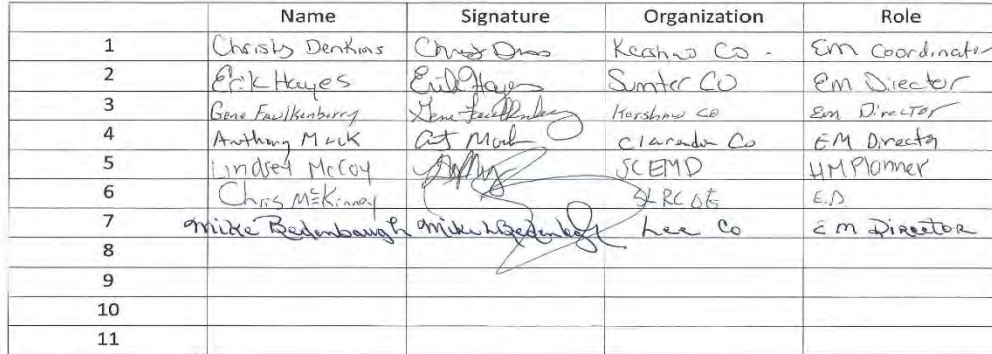 Name Signature Organization Role
1 Christy Denkins Kershaw Co - EM Coordinator
2 Erik Hayes Erik Hayes Sumter CO Em Director
3 Gene Faulkenberry Gene Faulkenberry Kershaw CO Em Director
4 Anthony Mack Clarendon Co EM Director
5 Lindsey McCoy SCEMD HM Planner
6 Chris McKinney E.D
7 Mike Bedenbaugh Mike Bedenbaugh Lee Co EM DIRECTOR
8
9
10
11